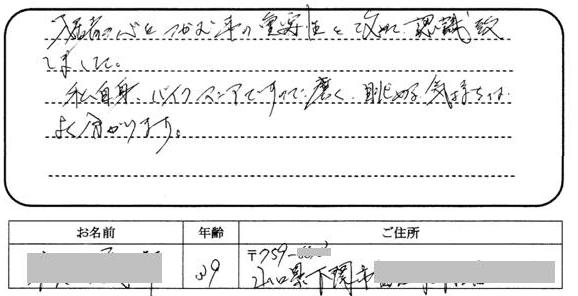 入居者の心をつかむ事の重要性を改めて認識致
しました。
私自身、バイクマニアですので磨く、眺める気持ちは
よく分かります。
お名前 年齢 ご住所
39 〒759-
山口県下関市